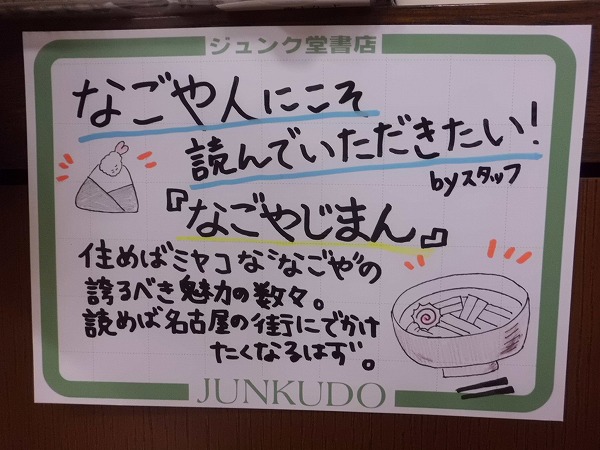 ジュンク堂書店
なごや人にこそ
読んでいただきたい!
byスタッフ
『なごやじまん』
住めばミヤコな"なごや"の
誇るべき魅力の数々。
読めば名古屋の街にでかけ
たくなるはず。
JUNKUDO